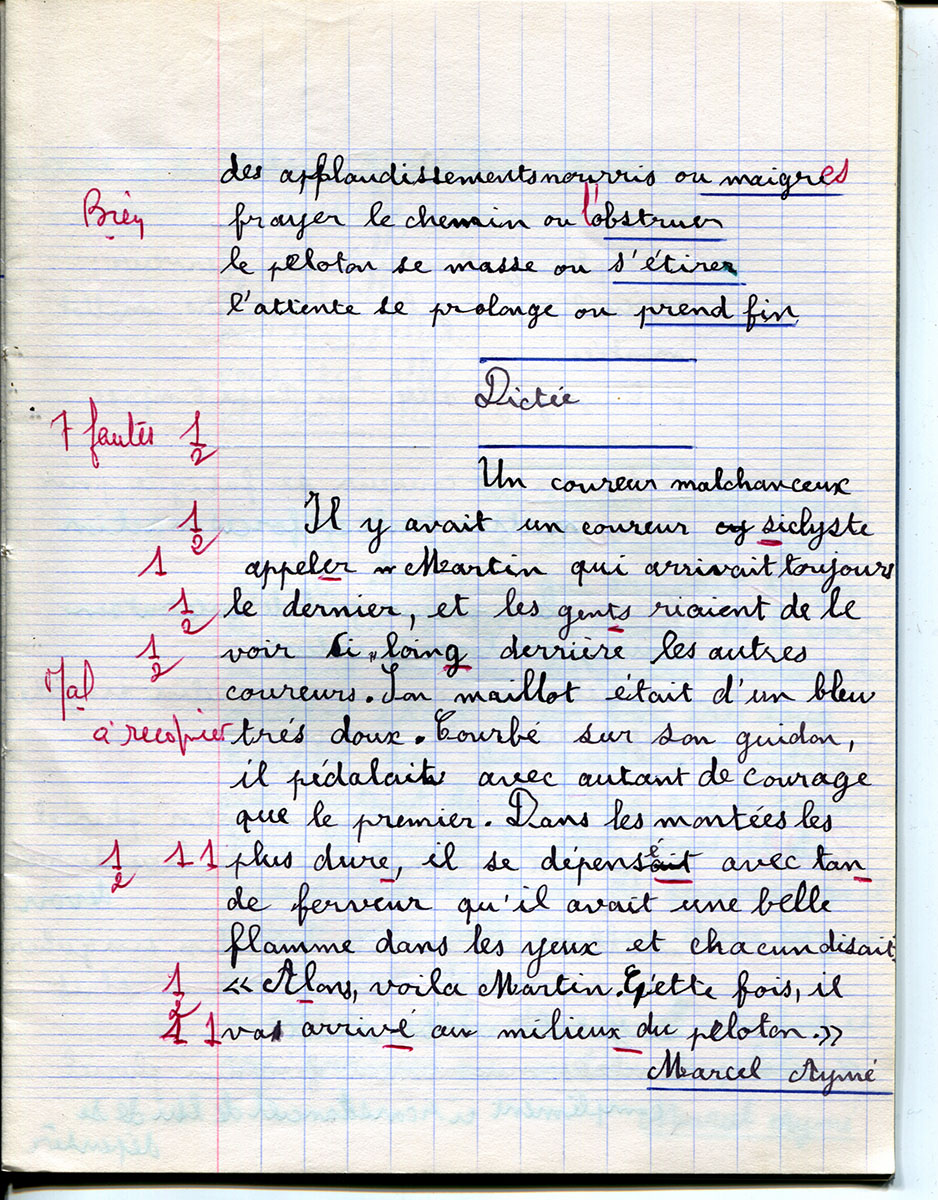 des applaudissements nourris ou maigres
Bien frayer le chemin ou l'obstruer
le peloton se masse ou s'étirer
l'attente se prolonge ou prend fin
Dictée
7 fautes 1/2
Un coureur malchanceux
1/2 Il y avait un coureur siclyste
1 appeler Martin qui arrivait toujours
1/2 le dernier, et les gents riaient de le
1/2 voir si loing derrière les autres
Mal coureurs. Son maillot était d'un bleu
à recopier trés doux. Courbé sur son guidon,
il pédalait avec autant de courage
que le premier. Dans les montées les
1/2 1 1 plus dure, il se dépensait avec tan
de ferveur qu'il avait une belle
flamme dans les yeux et chacun disait
1/2 « Alons, voila Martin. Cette fois, il
1 1 va arrivé au milieux du peloton. »
Marcel Aymé